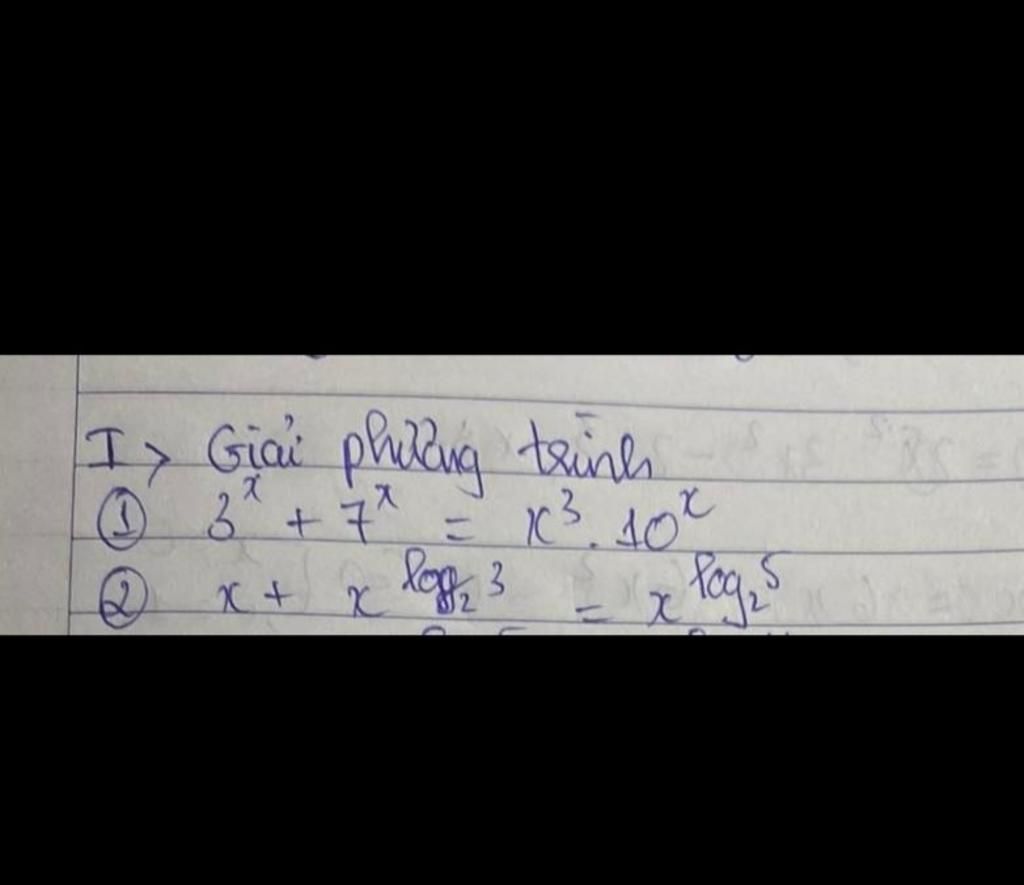 I> Giải phương trình
① 3^x + 7^x = x^3 . 10^x
② x + x^{log_2 3} = x^{log_2 5}